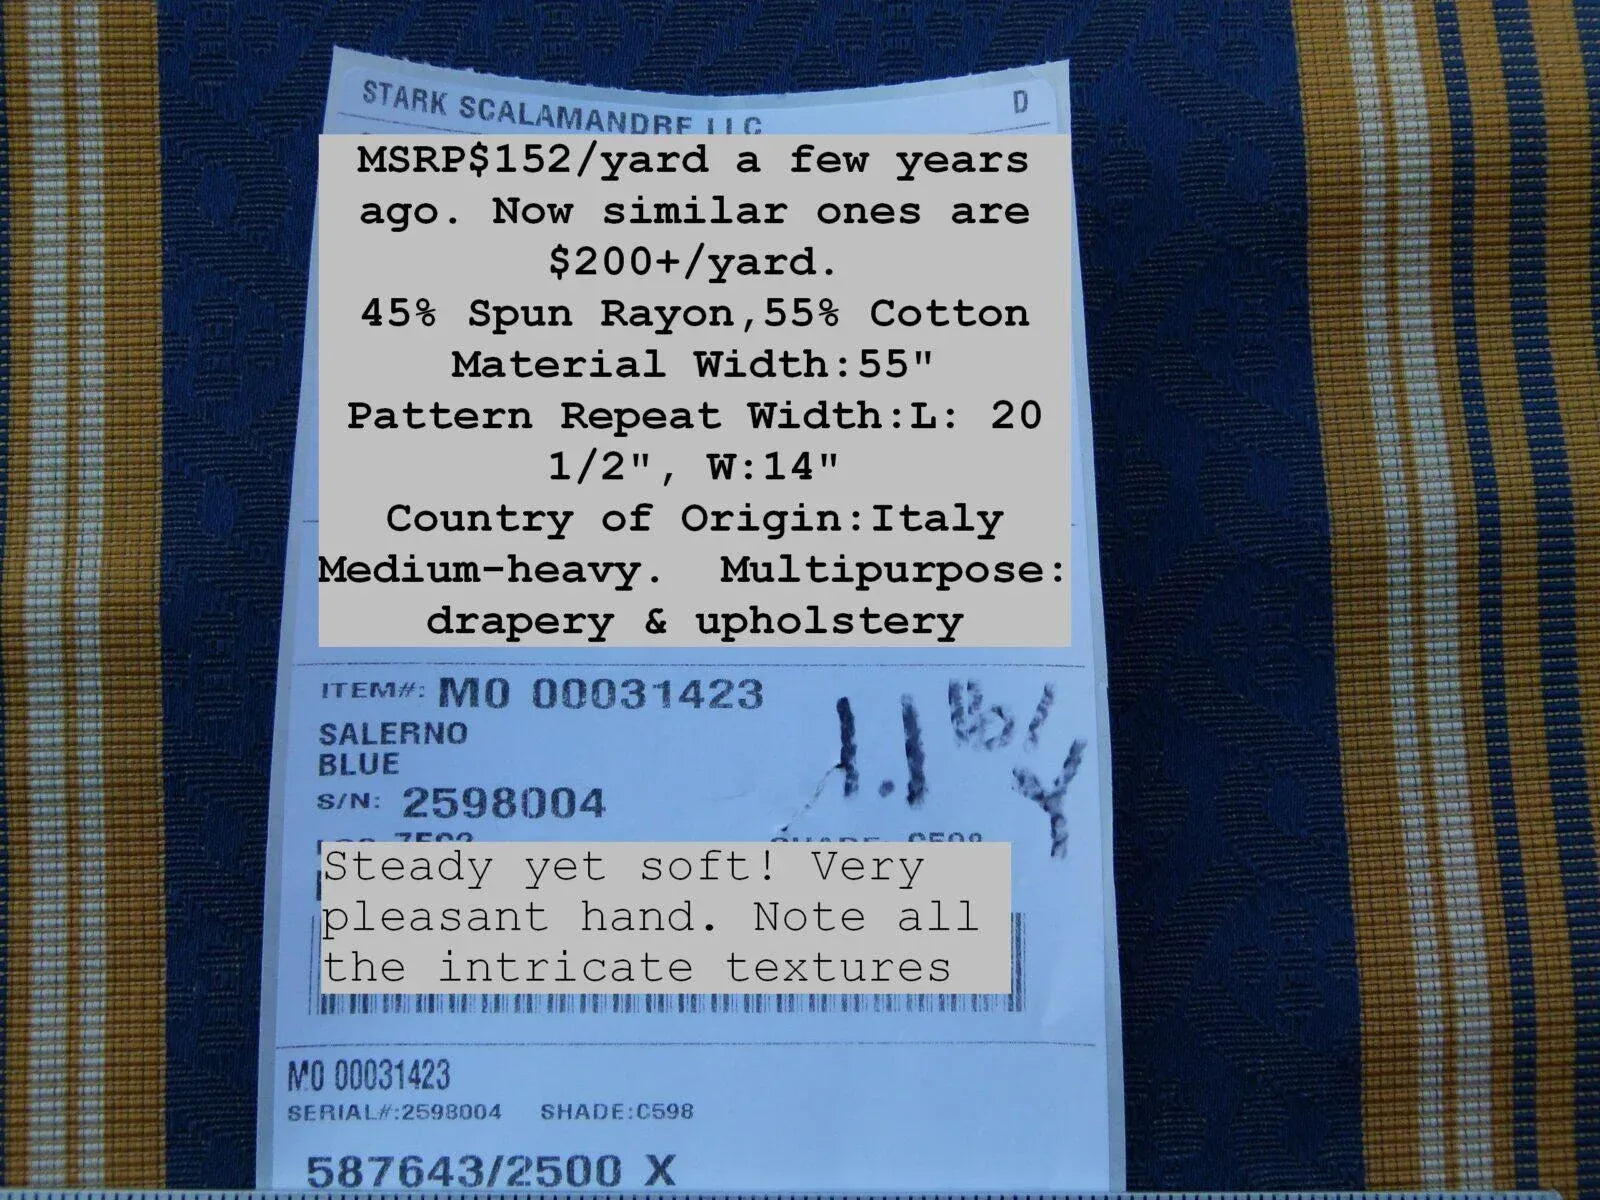 STARK SCALAMANDRE LLC
D
MSRP$152/yard a few years
ago. Now similar ones are
$200+/yard.
45% Spun Rayon,55% Cotton
Material Width:55"
Pattern Repeat Width:L: 20
1/2", W:14"
Country of Origin:Italy
Medium-heavy. Multipurpose:
drapery & upholstery
ITEM#: MO 00031423
SALERNO
BLUE
S/N: 2598004
1.1 lb/
Y
SHADE: C598
Steady yet soft! Very
pleasant hand. Note all
the intricate textures
MO 00031423
SERIAL#:2598004 SHADE:C598
587643/2500 X